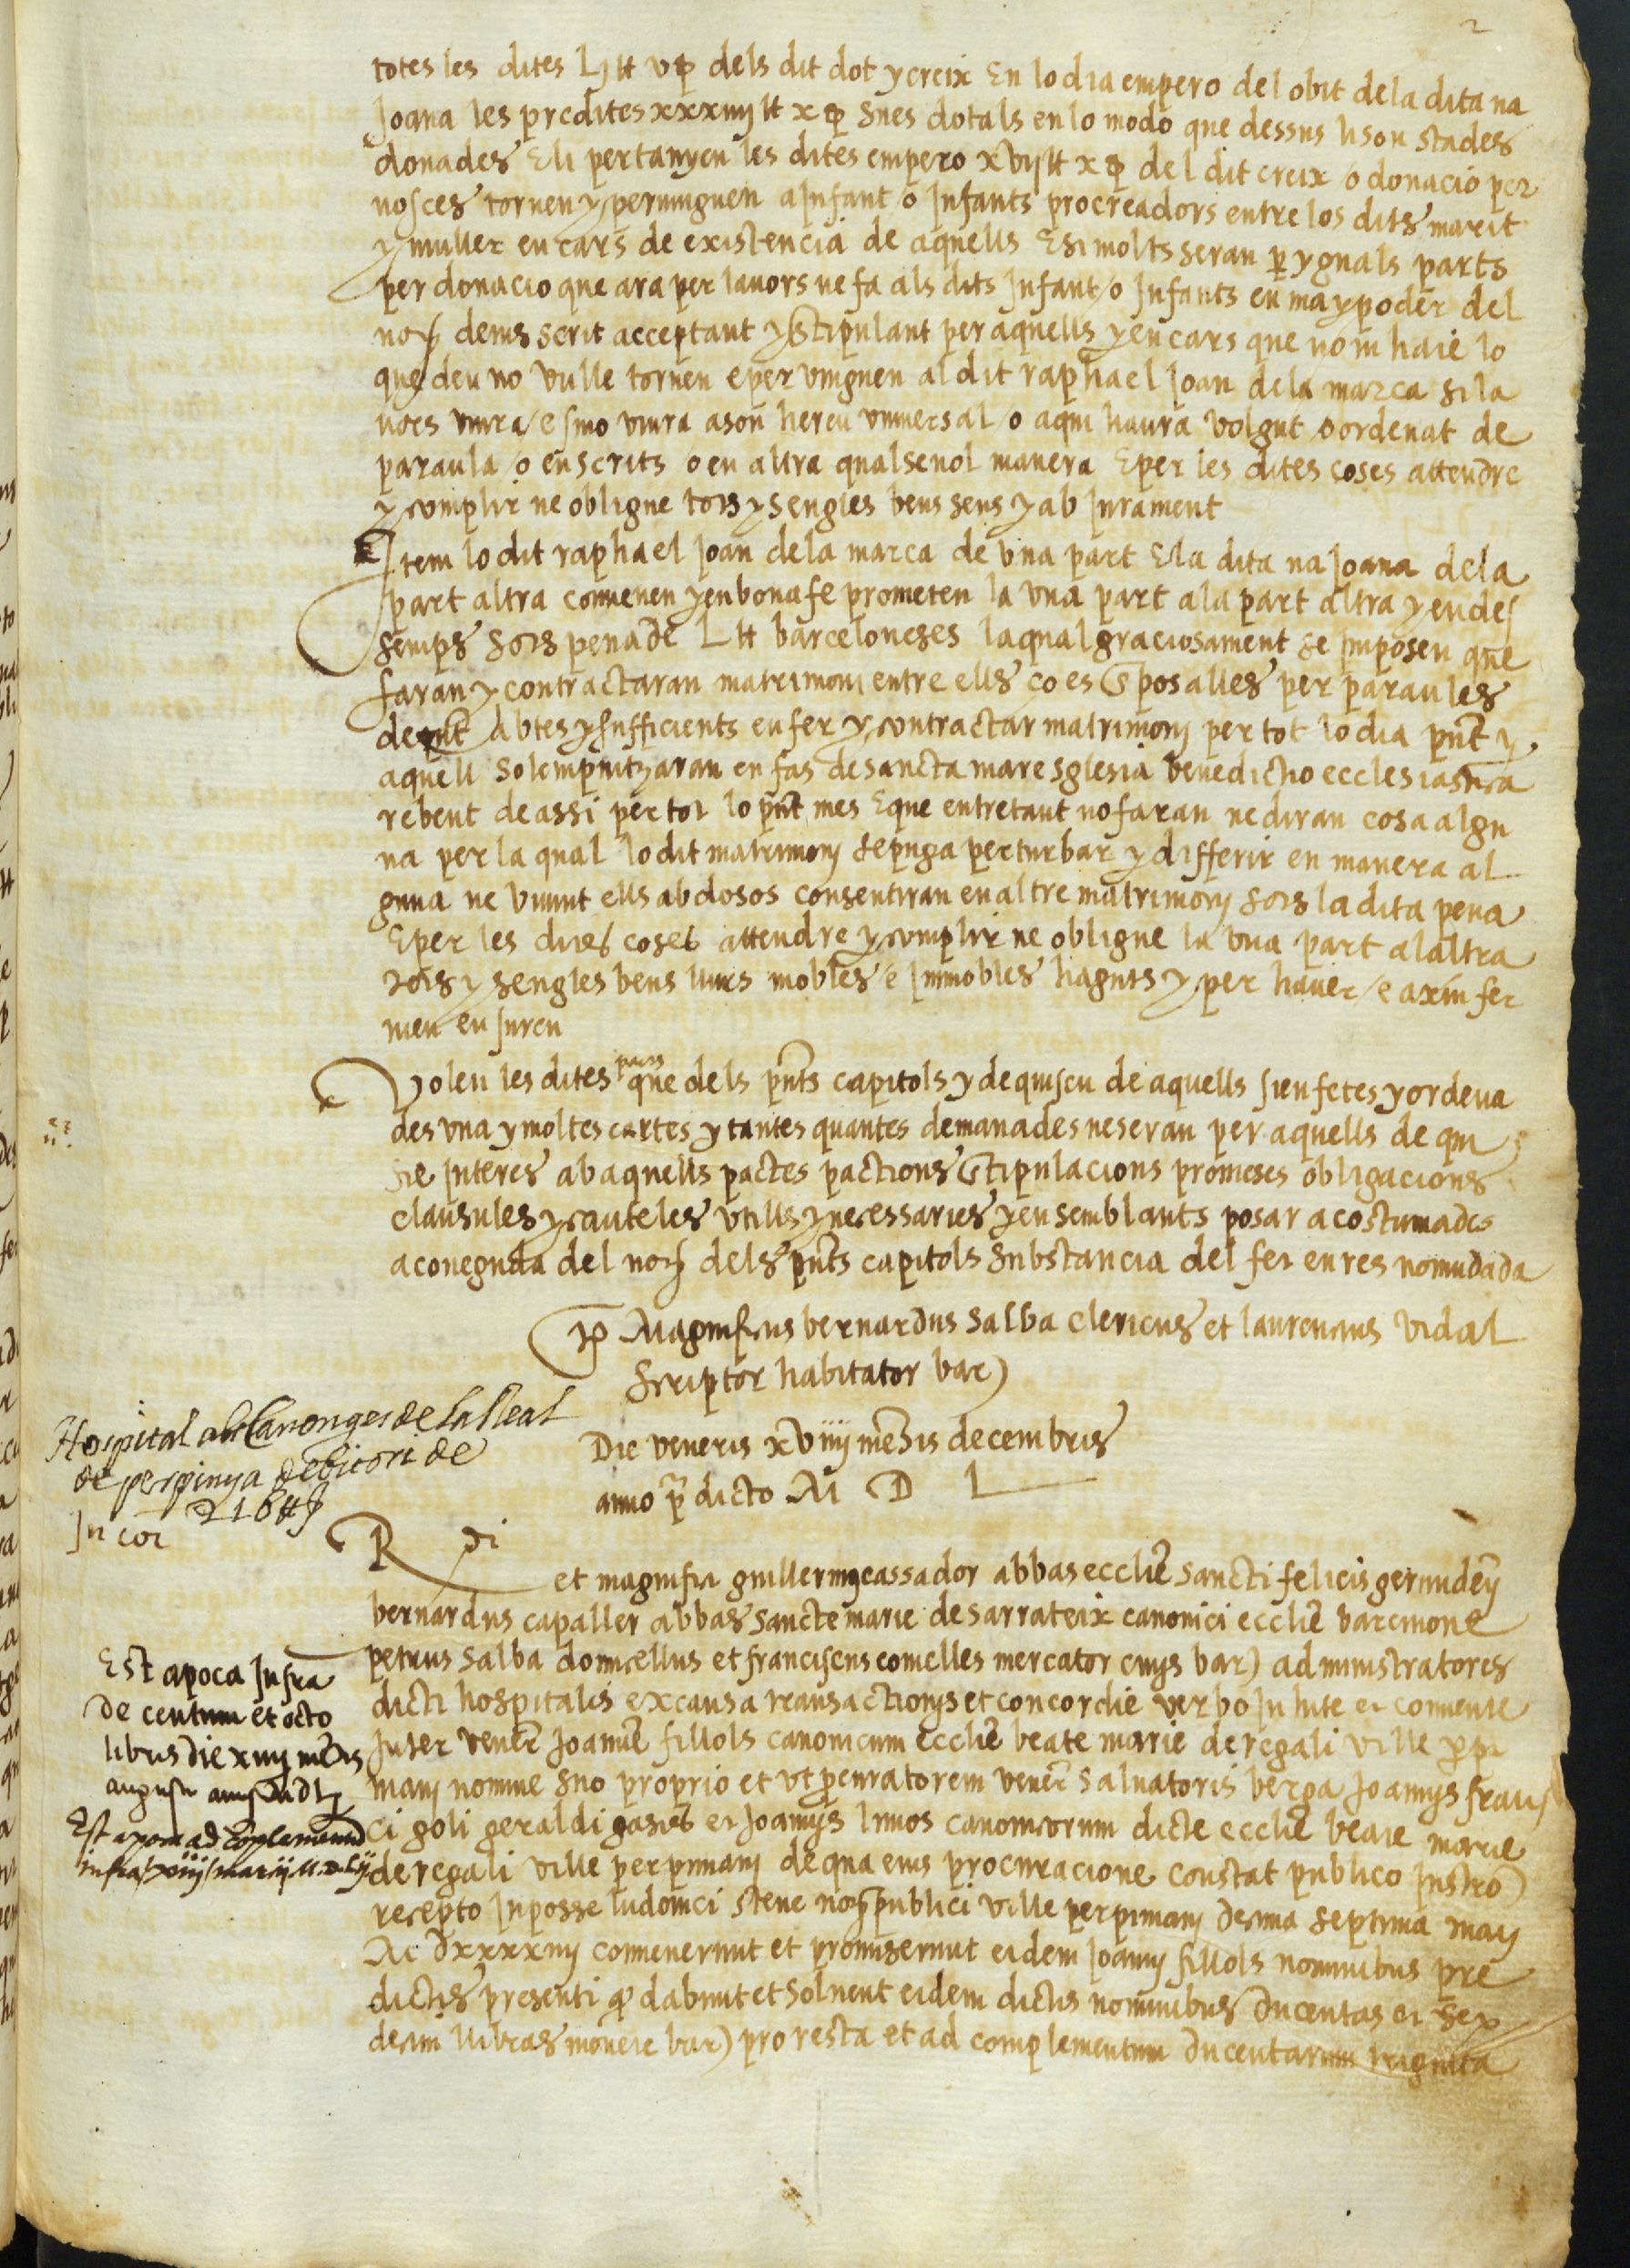 2
totes les dites Lj ₶ v ss dels dit dot y creix En lo dia empero del obit de la dita na
Joana les predites xxxiiij ₶ x ss snes dotals en lo modo que dessus li son stades
donades E li pertanyen les dites empero xvij ₶ x ss del dit creix o donacio per
nosces tornen y pervinguen a Infant o Infants procreadors entre los dits marit
y muller en cars de existencia de aquells E si molts seran per yguals parts
per donacio que ara per lavors ne fa als dits Infant o Infants en ma y poder del
not devus scrit acceptant y stipulant per aquells y en cars que no ni haie lo
que deu no vulle tornen e pervinguen al dit raphael Joan dela marca si la
vors viura / e sino viura a son hereu universal / o a qui haura volgut / o ordenat de
paraula / o en scrits o en altra qualsevol manera E per les dites coses attendre
y complir ne obligue tots y sengles bens seus y ab Jurament
Item lo dit raphael Joan dela marca de una part E la dita na Joana dela
part altra convenen y en bona fe prometen la una part a la part altra y en des
semps sots pena de L ₶ barceloneses la qual graciosament se imposen que
faran y contractaran matrimoni entre ells ço es sposalles per paraules
de pnt abtes y sufficients en fer y contractar matrimonj per tot lo dia pnt y
aquell solempnitzaran en fas de sancta mare sglesia benedictio ecclesiastica
rebent de assi per tot lo pnt mes E que entretant no faran ne diran cosa algu
na per la qual lo dit matrimonj se puga perturbar y differir en manera al
guna ne vivint ells abdosos consentiran en altre matrimonj sots la dita pena
E per les dites coses attendre y complir ne obligue la una part a laltra
tots y sengles bens llurs mobles / e Immobles haguts y per haver / e axi u fer
men en Juren
Volen les dites parts que dels pnts capitols y de quiscu de aquells sien fetes y ordena
des una y moltes cartes y tantes quantes demanades ne seran per aquells de qui
sie Interes ab aquells pactes pactions stipulacions promeses obligacions
clausules y cauteles utills y necessaries y en semblants posar acostumades
a coneguda del not dels pnts capitols substancia del fet en res no mudada
Magnificus bernardus Salba clericus et laurencius Vidal
Scriptor habitator bar)
Die veneris xviiij mensis decembris
anno predicto M D L
Hospital als Canonges de la Real
de perpinya debitori de
216 ₶
In cor
Rdi
et magnifici guillermus cassador abbas ecclie sancti felicis gerunden
bernardus capaller abbas sancte marie de sarrateix canonici ecclie barcinone
petrus salba domicellus et franciscus comelles mercator civis bar) administratores
dicti hospitalis ex causa transactionis et concordie verbo Inhite et convente
Inter vener Joannem fillols canonicum ecclie beate marie de regali ville perpi
mani nomine suo proprio et ut procuratorem vener salvatoris berga Joannis fran
ci goli geraldi et Joannis canonicorum dicte ecclie beate marie
de regali ville perpiniani de qua eius procuracione constat publico Instro
recepto In posse ludovici stene not publici ville perpiniani decima septima maij
M dxxxxiij convenerunt et promiserunt eidem Joanni fillols nominibus pre
dictis presenti quod dabunt et solvent eidem dictis nominibus ducentas et sex
decim libras monete bar) pro resta et ad complementum ducentarum triginta
Est apoca Infra
de centum et octo
libris die xiiij mensis
augusti anni M dlj
Est apoca ad complementum
infra / xiiij / marcij M.D.Lij